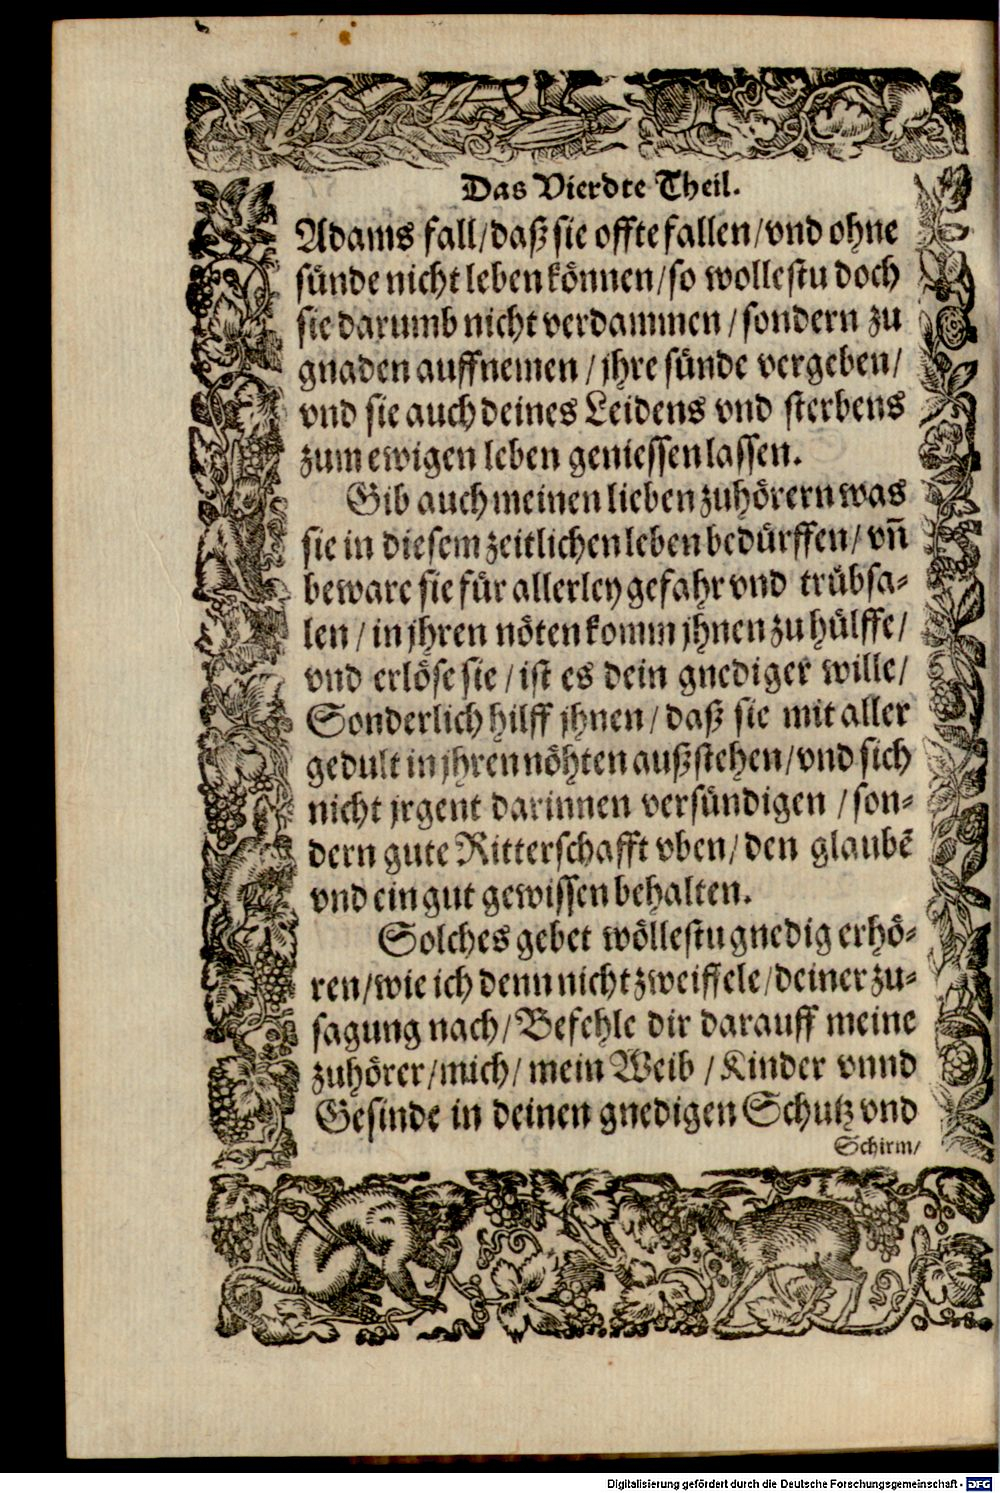 Das Vierdte Theil.
Adams fall/daß sie offte fallen/vnd ohne
sünde nicht leben können/so wollestu doch
sie darumb nicht verdammen/sondern zu
gnaden auffnemen/jhre sünde vergeben/
vnd sie auch deines Leidens vnd sterbens
zum ewigen leben geniessen lassen.
Gib auch meinen lieben zuhörern was
sie in diesem zeitlichen leben bedürffen/vñ
beware sie für allerley gefahr vnd trübsa-
len/in jhren nöten komm jhnen zu hülffe/
vnd erlöse sie/ist es dein gnediger wille/
Sonderlich hilff jhnen/daß sie mit aller
gedult in jhren nöhten außstehen/vnd sich
nicht jrgent darinnen versündigen/son-
dern gute Ritterschafft vben/den glaubẽ
vnd ein gut gewissen behalten.
Solches gebet wöllestu gnedig erhö-
ren/wie ich denn nicht zweiffele/deiner zu-
sagung nach/Befehle dir darauff meine
zuhörer/mich/mein Weib/Kinder vnnd
Gesinde in deinen gnedigen Schutz vnd
Schirm/
Digitalisierung gefördert durch die Deutsche Forschungsgemeinschaft - DFG